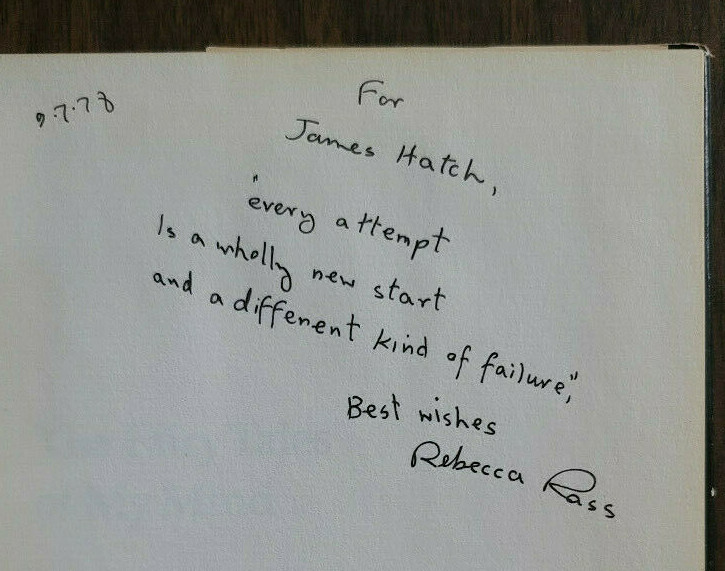 9.7.78
For
James Hatch,
"every attempt
Is a wholly new start
and a different kind of failure,"
Best wishes
Rebecca Rass